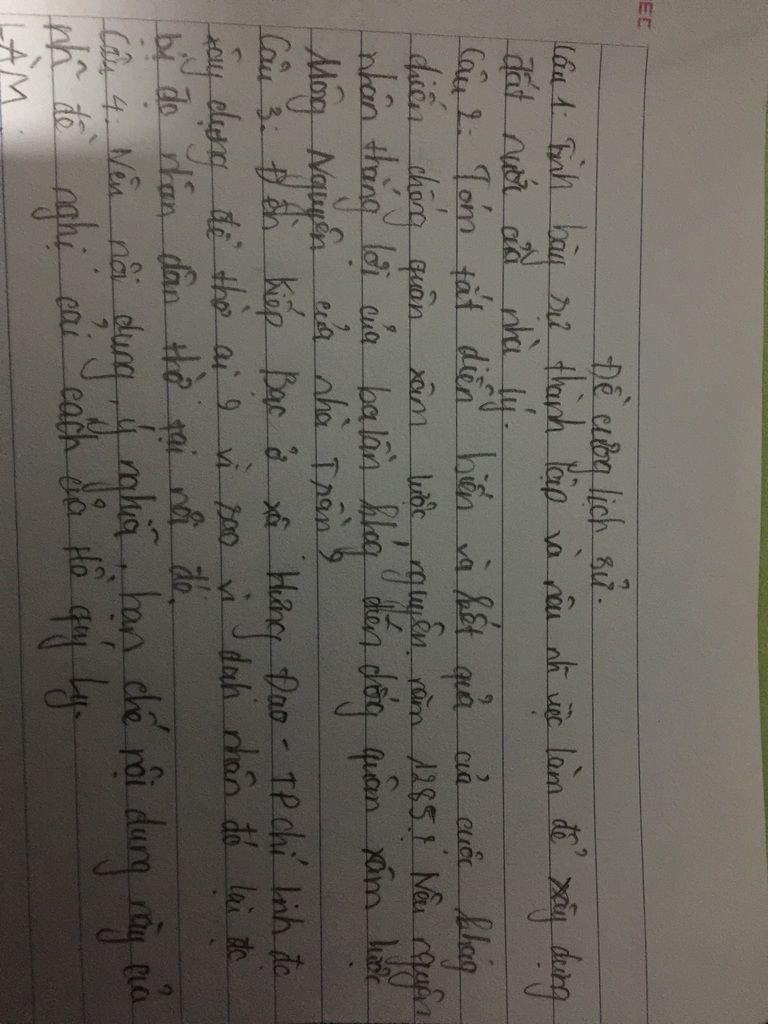 EEC
Đề cương lịch sử.
Câu 1: Trình bày sự thành lập và nêu nh việc làm để xây dựng
đất nước của nhà lý.
Câu 2: Tóm tắt diễn biến và kết quả của cuộc kháng
chiến chống quân xâm lược nguyên năm 1285? Nêu nguyên
nhân thắng lợi của ba lần kháng chiến chống quân xâm lược
Mông Nguyên của nhà Trần?
Câu 3: Đền Kiếp Bạc ở xã Hưng Đạo - TP chí linh đc
xây dựng để thờ ai? vì sao vị danh nhân đó lại đc
nhân dân thờ tại nơi đó.
Câu 4: Nêu nội dung, ý nghĩa, hạn chế nội dung này của
nh đề nghị cải cách của Hồ quý Ly.
LÀM